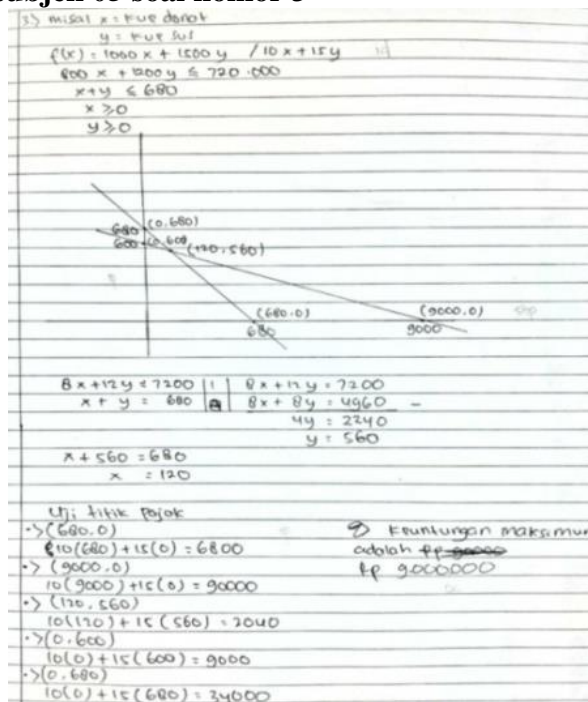 soal nomor
3) misal x = kue donat
y = kue sus
f(x) = 1000 x + 1500 y / 10 x + 15 y
800 x + 1200 y ≤ 720.000
x+y ≤ 680
x ≥ 0
y ≥ 0
680 (0,680)
600 (0,600) (120,560)
(680,0) (9000,0)
680 9000
8x + 12y = 7200 | 1 | 8x + 12y = 7200
x + y = 680 | 8x + 8y = 4960 -
4y = 2240
y = 560
x + 560 = 680
x = 120
Uji titik pojok
•> (680,0)
10(680) + 15(0) = 6800
•> (9000,0)
10(9000) + 15(0) = 90000
•> (120,560)
10(120) + 15(560) = 2040
•> (0,600)
10(0) + 15(600) = 9000
•> (0,680)
10(0) + 15(680) = 34000
Keuntungan maksimum
adalah
Rp 9000000